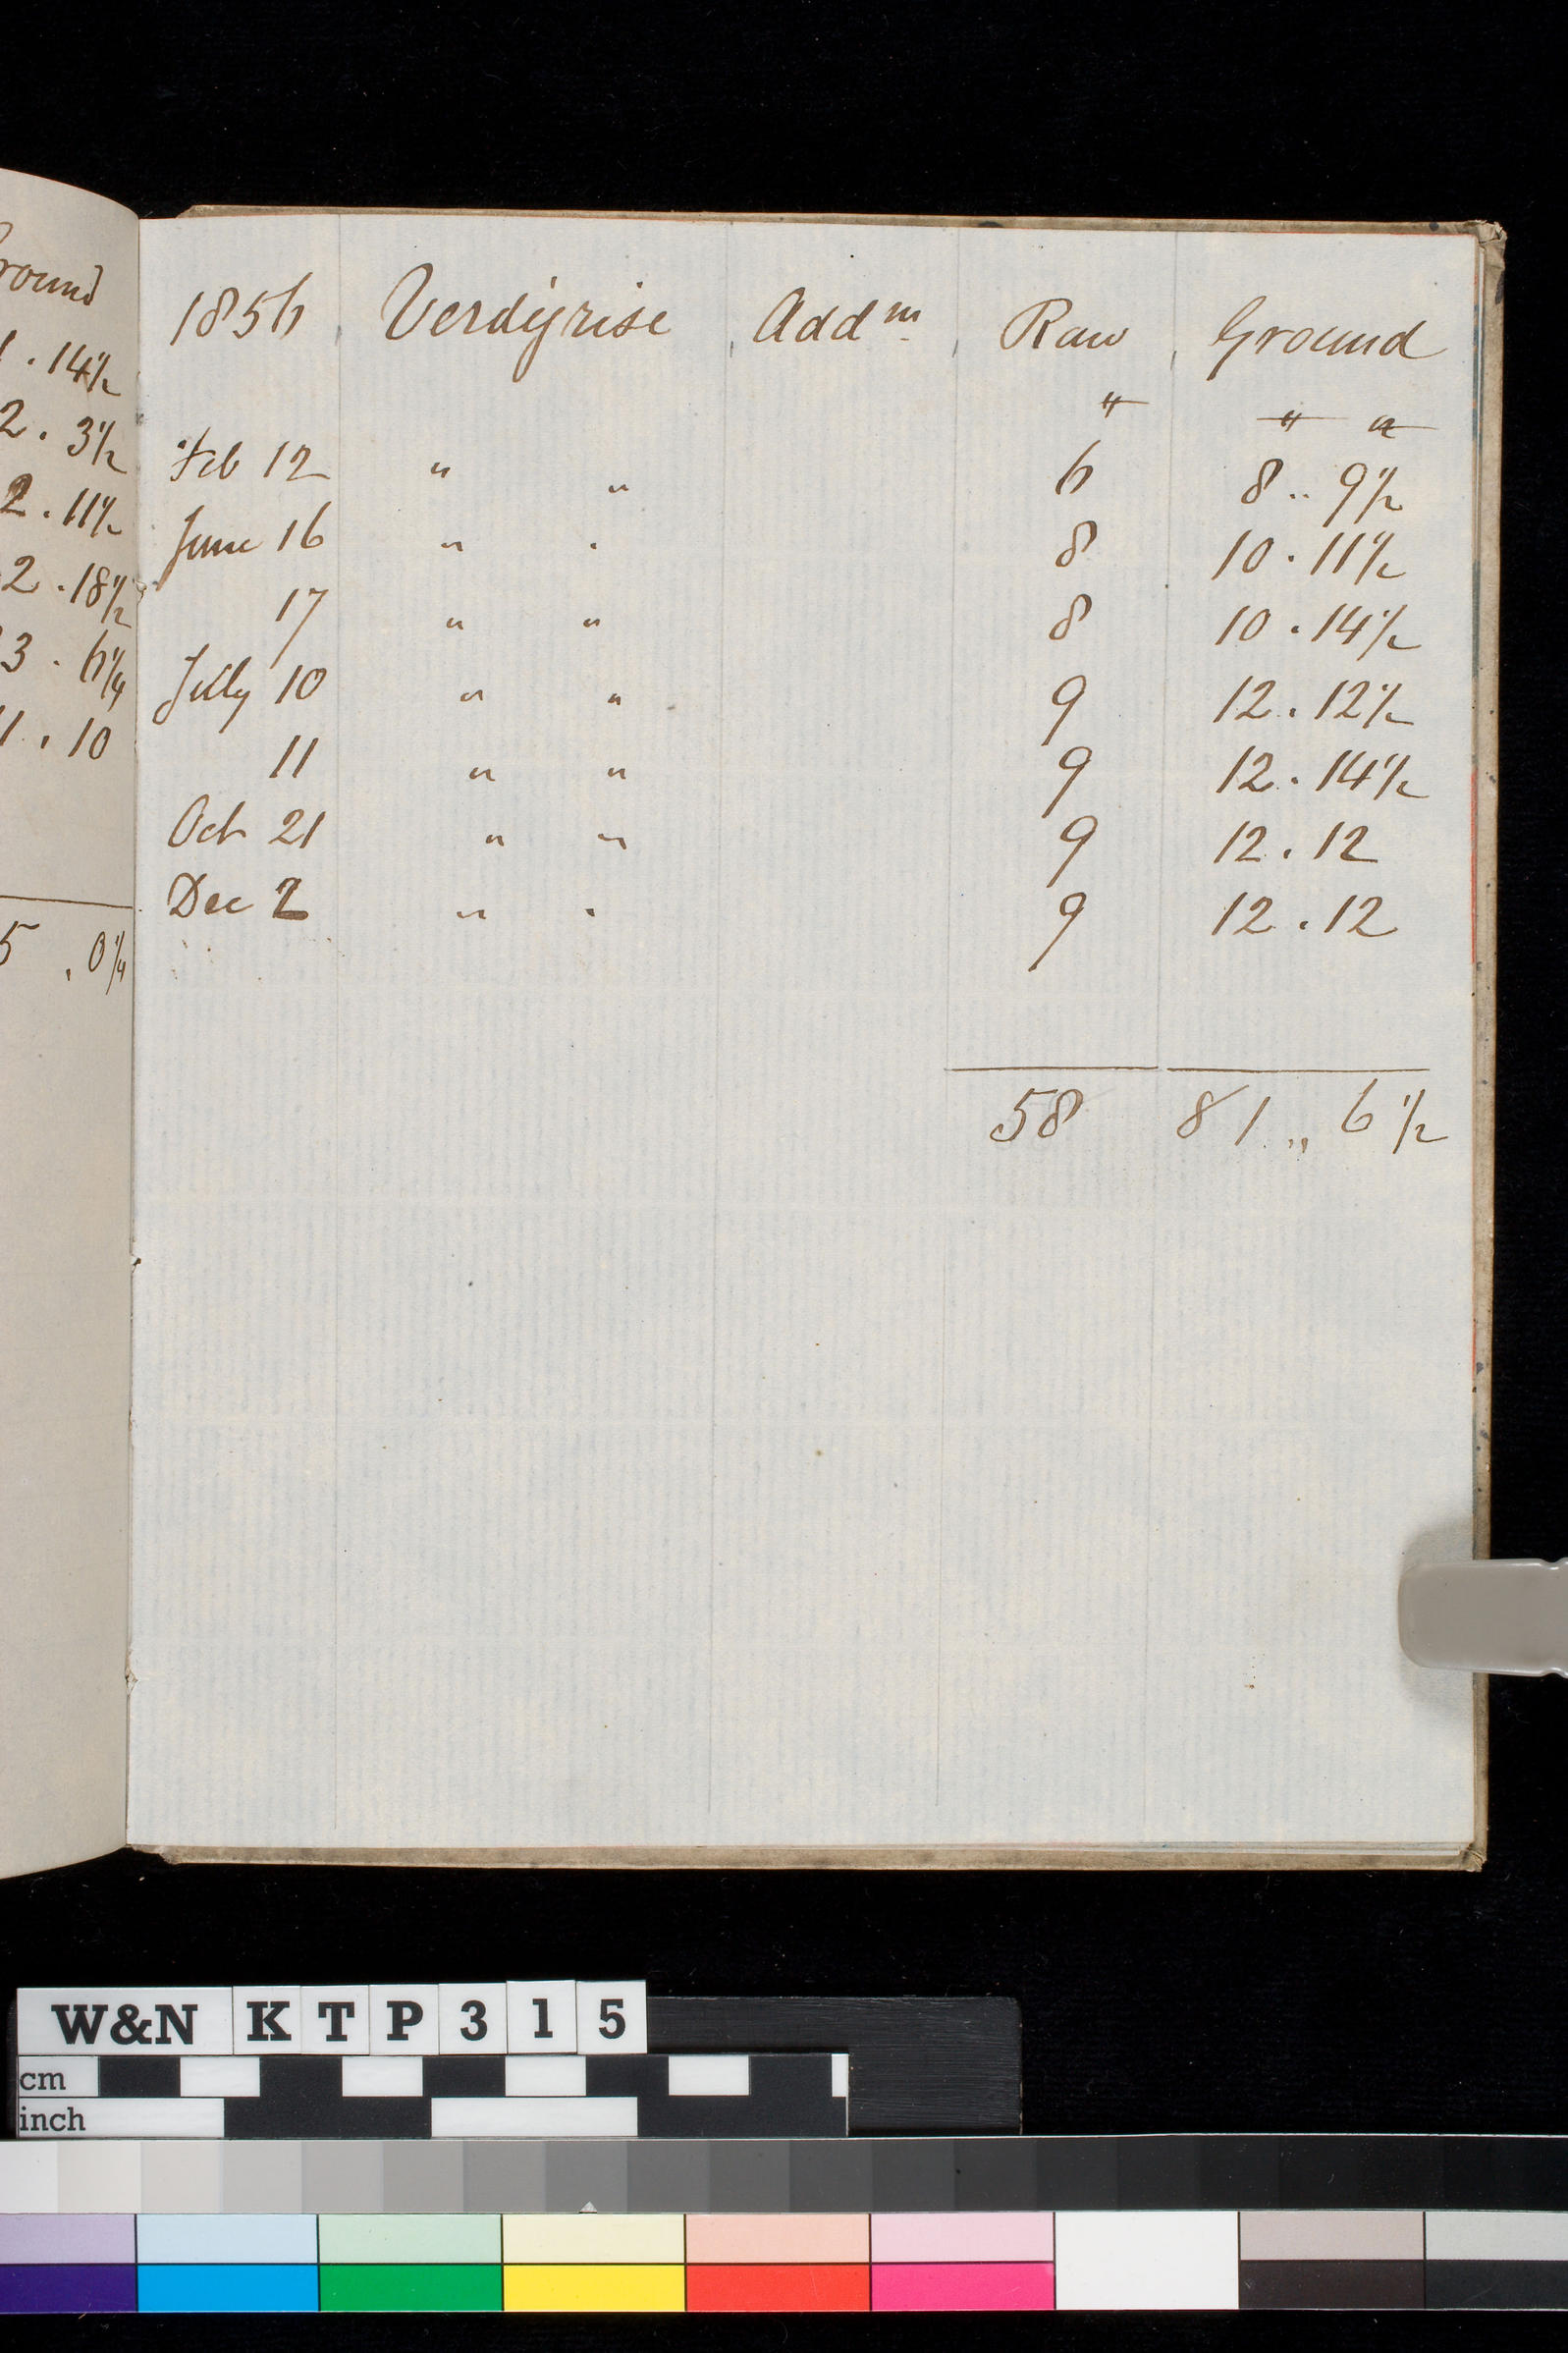 round
1 . 14½
2 . 3½
2 . 11½
2 . 18½
3 . 6¼
1 . 10
5 . 0¼
1856 Verdigrise Addⁿ Raw Ground
" " "
Feb 12 " " 6 8 .. 9½
June 16 " " 8 10 . 11½
17 " " 8 10 . 14½
July 10 " " 9 12 . 12½
11 " " 9 12 . 14½
Oct 21 " " 9 12 . 12
Dec 2 " " 9 12 . 12
58 81 ,, 6½
W&N KTP315
cm
inch